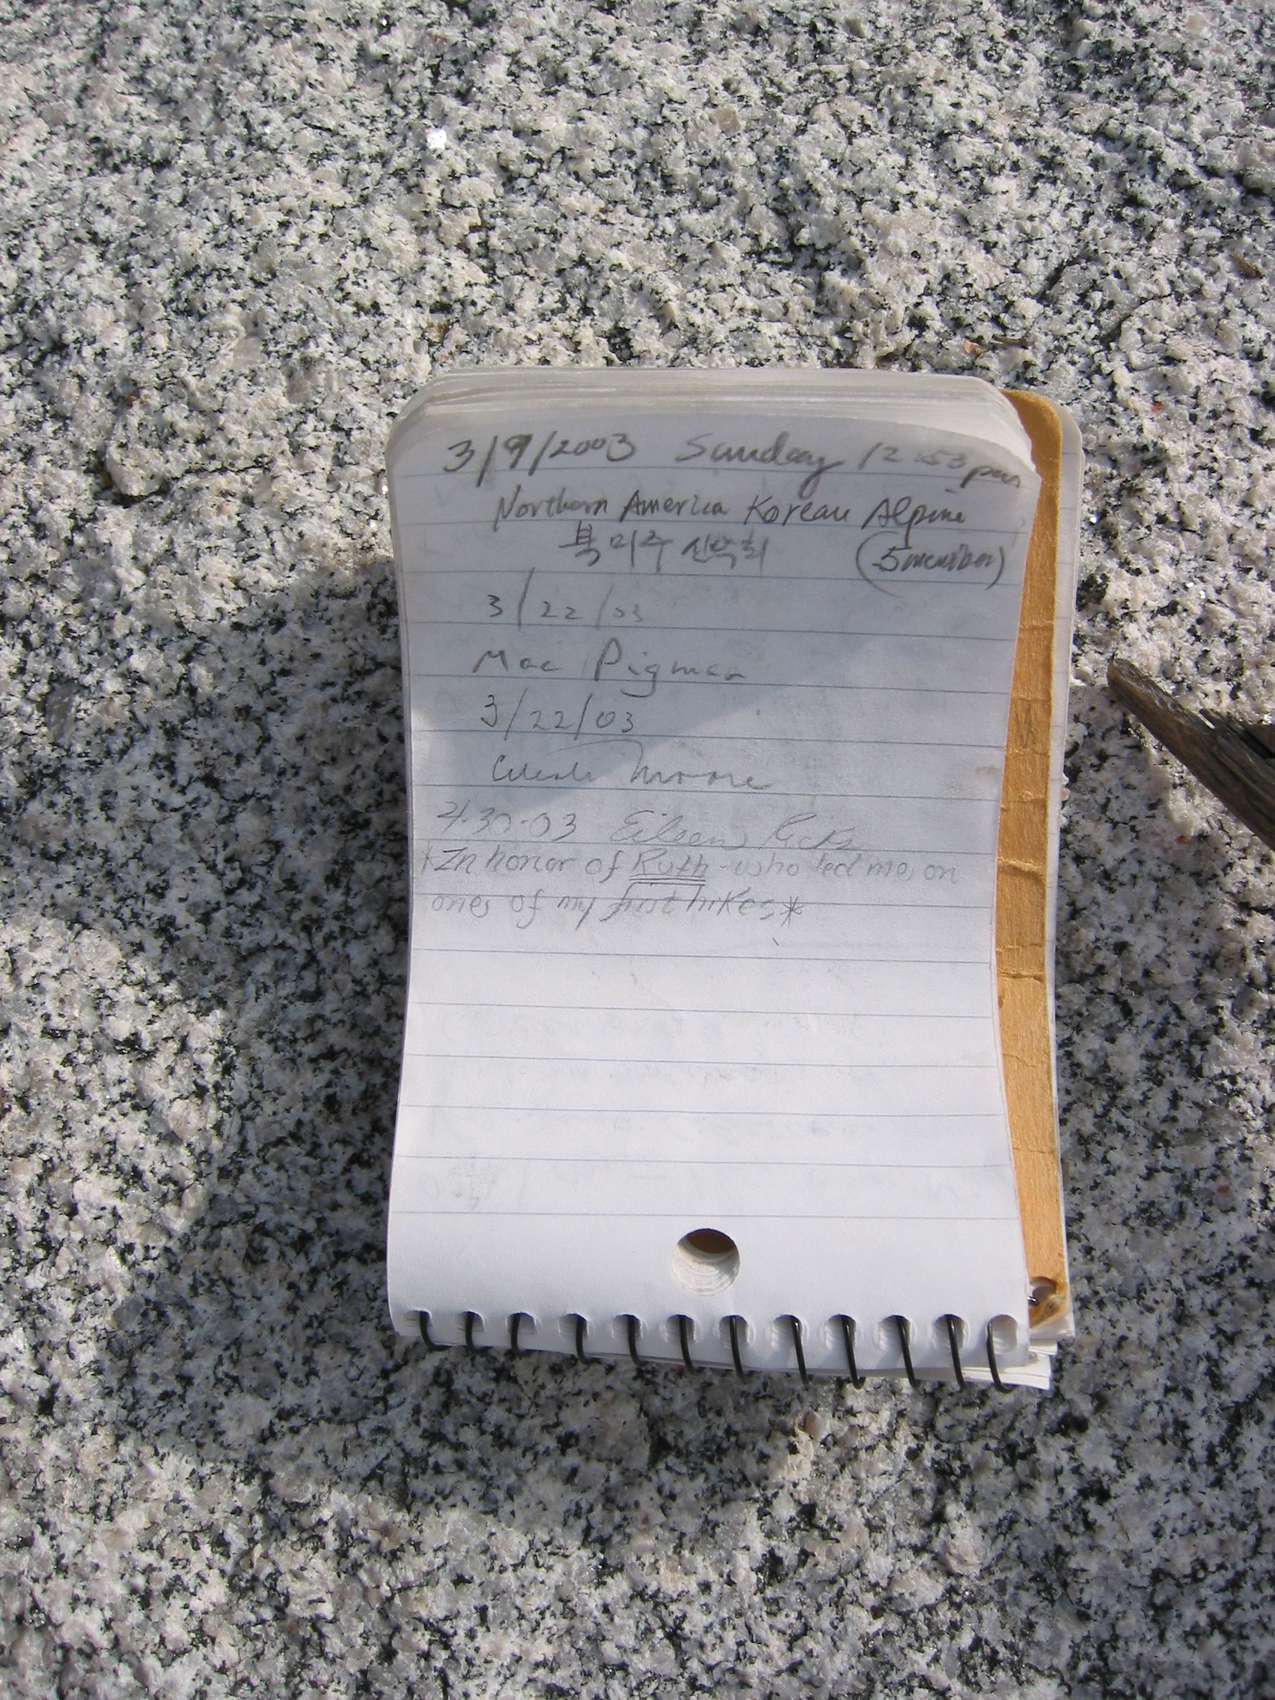 3/9/2003 Sunday 12:53 pm
Northern America Korean Alpine
북미주 산악회 (5 member)
3/22/03
Mac Pigman
3/22/03
Moore
4-30-03 Eileen
*In honor of Ruth - who led me on
one of my first hikes*